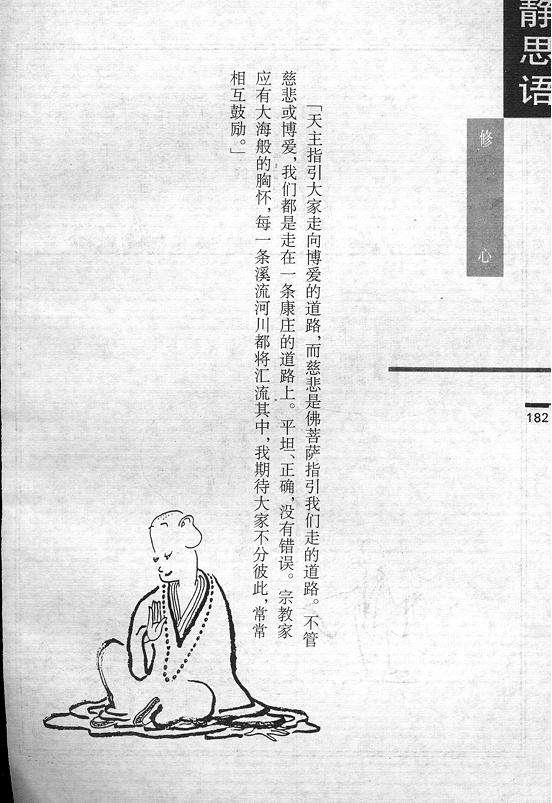 静思语
修心
182
「天主指引大家走向博爱的道路，而慈悲是佛菩萨指引我们走的道路。不管
慈悲或博爱，我们都是走在一条康庄的道路上。平坦、正确，没有错误。宗教家
应有大海般的胸怀，每一条溪流河川都将汇流其中，我期待大家不分彼此，常常
相互鼓励。」